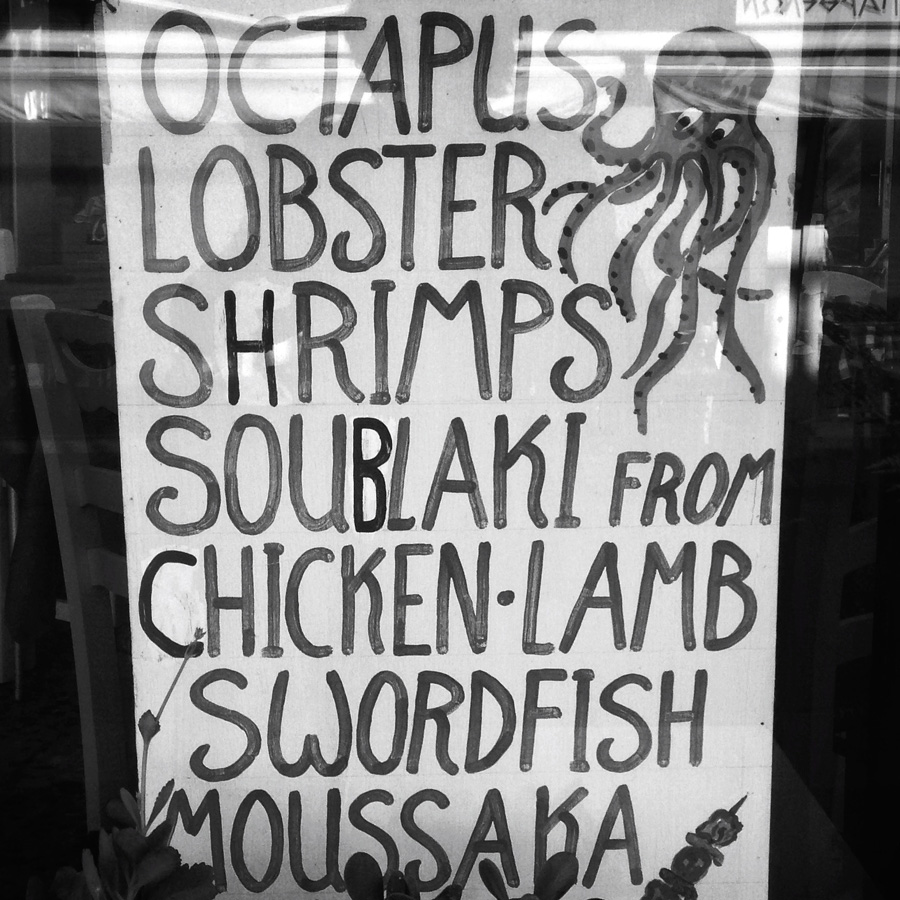 OCTAPUS
LOBSTER
SHRIMPS
SOUBLAKI FROM
CHICKEN·LAMB
SWORDFISH
MOUSSAKA